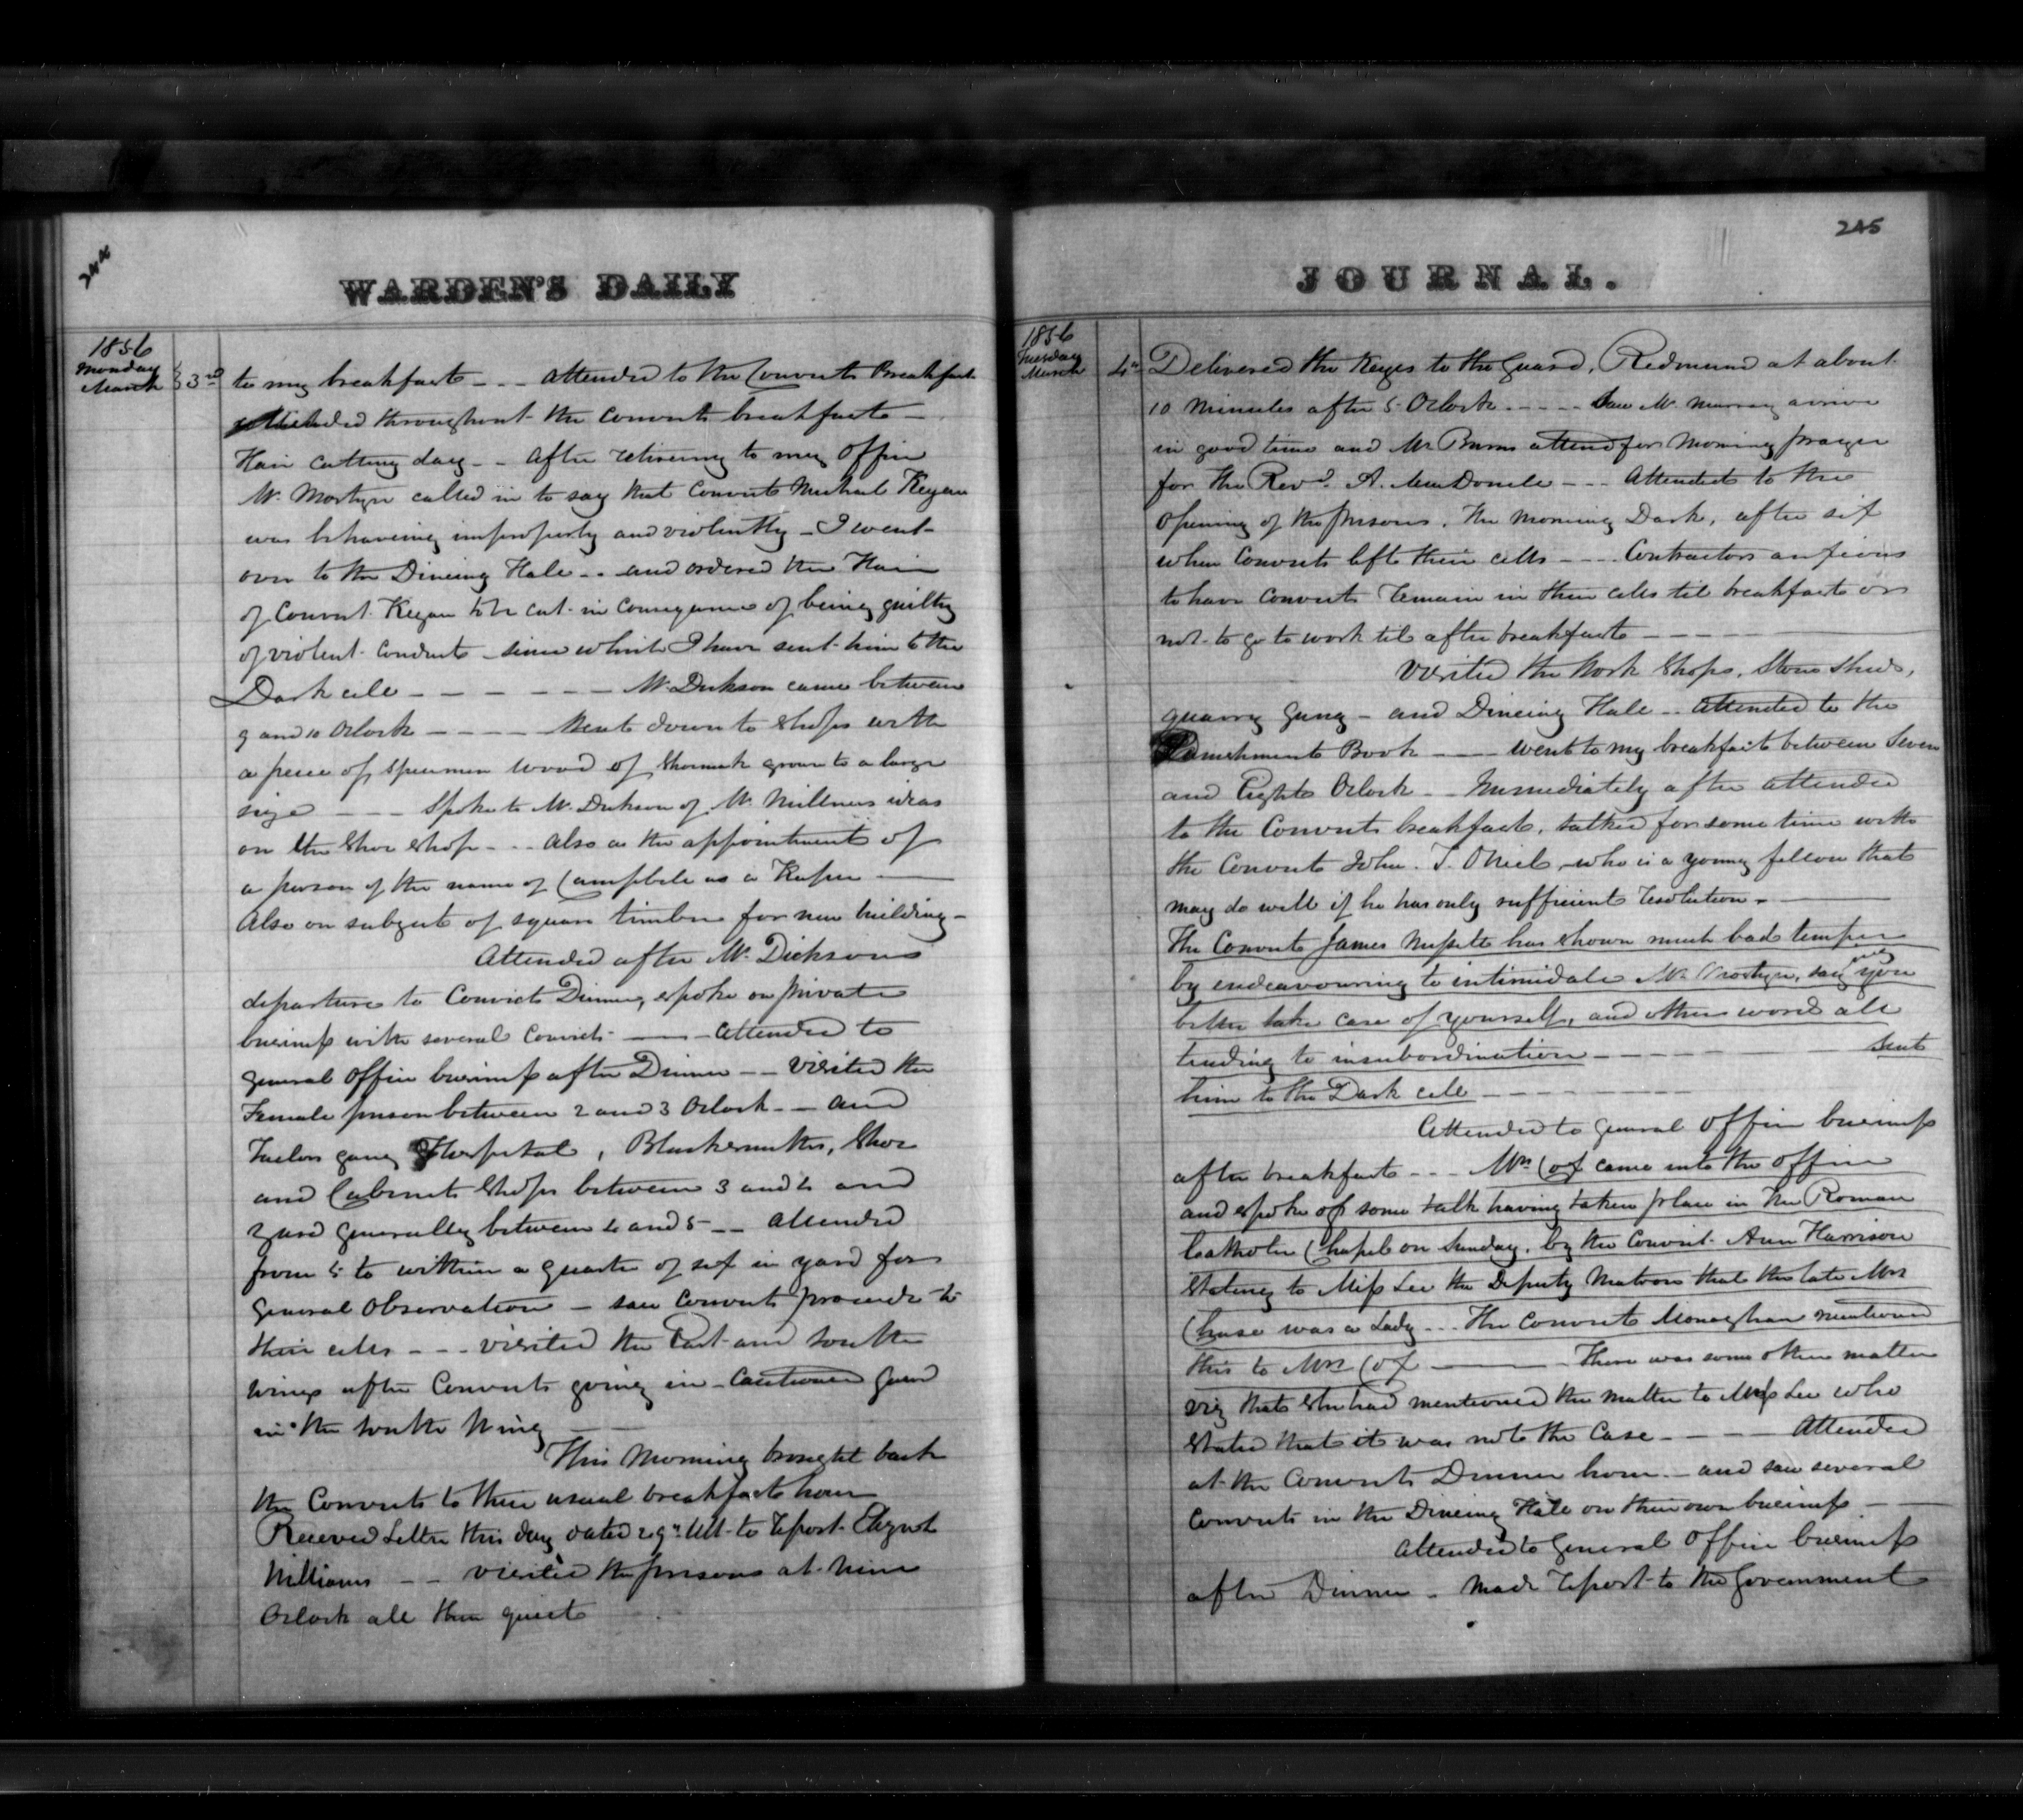 244
WARDEN'S DAILY
1856
Monday
March 3rd
to my breakfast - - - attended to the Convicts Breakfast
attended throughout the Convicts breakfast -
Hair cutting day - - After retireing to my Office
Mr. Mostyn called in to say that Convict Michael Kegan
was behaveing improperly and violently - I went
over to the Dineing Hall - - and ordered the Hair
of Convict Kegan to be cut in consequence of being guilty
of violent Conduct - since which I have sent him to the
Dark cell - - - - - - - Mr. Dickson came between
9 and 10 Oclock - - - - Sent down to Shops with
a piece of specimen wood of Shomack grown to a large
size - - - Spoke to Mr. Dickson of Mr. Millners ideas
on the Shoe Shop - - - Also on the appointment of
a person of the name of Campbell as a Keeper -
Also on subject of square timber for new building -
Attended after Mr. Dicksons
departure to Convicts Dinner, spoke on private
business with several Convicts - - Attended to
general Office business after Dinner - - Visited the
Female prison between 2 and 3 Oclock - - and
Tailors gang Hospital, Blacksmiths, Shoe
and Cabinet Shops between 3 and 4 and
yard generally between 4 and 5 - - Attended
from 5 to within a quarter of six in yard for
General Observation - saw Convicts proceed to
their cells - - - visited the East and South
Wings after Convicts going in - Cautioned Guard
in the South Wing
This Morning brought back
the Convicts to their usual breakfast hour
Received Letter this day dated 29th Ult. to report Elizabeth
Williams - - visited the prisons at Nine
Oclock all then quiet
245
JOURNAL.
1856
Tuesday
March 4th
Delivered the Keyes to the Guard, Redmund at about
10 Minutes after 5 Oclock - - - - Saw Mr. Murray arrive
in good time and Mr Burns attend for Morning prayer
for the Revd. A. MacDonell - - - Attended to the
Opening of the prisons. The Morning Dark, after six
when Convicts left their cells - - - Contractors anxious
to have Convicts remain in their cells til breakfast or
not to go to work til after breakfast - - - -
Visited the Work Shops, Stone Sheds,
quarry Gang - and Dineing Hall - - Attended to the
Punishment Book - - - went to my breakfast between Seven
and Eight Oclock - - Immediately after attended
to the Convicts breakfast, talked for some time with
the Convict John. T. ONiel, who is a young fellow that
may do well if he has only sufficient resolution -
The Convict James has shown much bad temper
by endeavouring to intimidate Mr. Mostyn, saying you
better take care of yourself, and other words all
tending to insubordination - - - - - - sent
him to the Dark cell - - - - - -
Attended to general Office business
after breakfast - - - Mrs Cox came into the Office
and spoke of some talk having taken place in the Roman
Catholic Chapel on Sunday, by the Convict Ann Harrison
Stateing to Miss Lee the Deputy Matron that the late Mrs
Chase was a Lady - - - The Convict Monaghan mentioned
this to Mrs Cox - There was some other matter
viz that She had mentioned the matter to Miss Lee who
Stated that it was not the Case - - - - Attended
at the Convicts Dinner hour - and saw several
Convicts in the Dineing Hall on their own business - -
Attended to General Office business
after Dinner - Made report to the Government